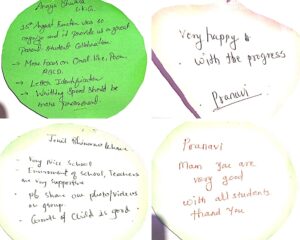 U.K.G.
15th August Function was so
organize and it provide us a great
Parent-Student Celebration.
→ More Focus on Oral like, Poem
→ Letter Identification
→ Writting Speed should be
more
Very happy
with the progress
Pranavi
- Very Nice School
- Environment of school, Teachers
very supportive
- Plz share our photo/videos
on group.
- Growth of child is good
Pranavi
Mam You are
very good
with all students
thank You